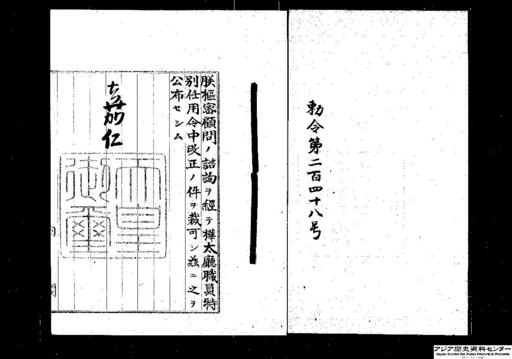 勅令第二百四十八号
朕枢密顧問ノ諮詢ヲ経テ樺太庁職員特
別任用令中改正ノ件ヲ裁可シ茲ニ之ヲ
公布セシム
嘉仁
天皇
御璽
アジア歴史資料センター
Japan Center for Asian Historical Records